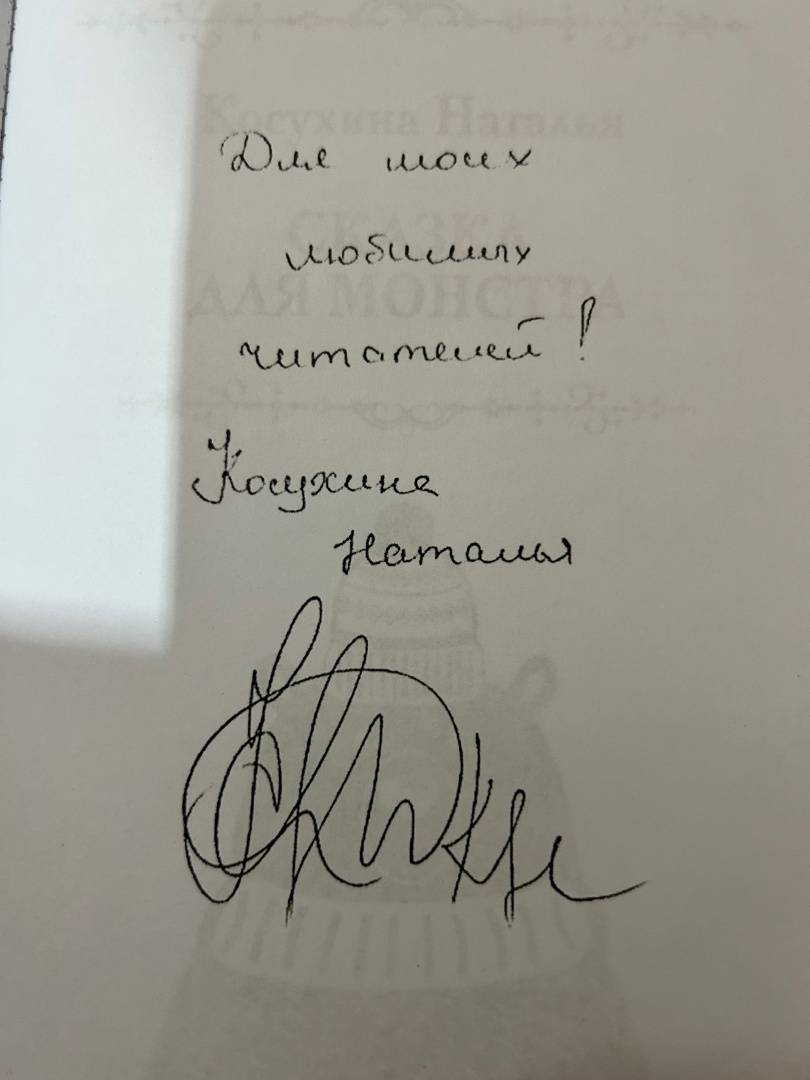 Косухина Наталья
Для моих
СКАЗКА
любимых
ДЛЯ МОНСТРА
читателей!
Косухина
Наталья